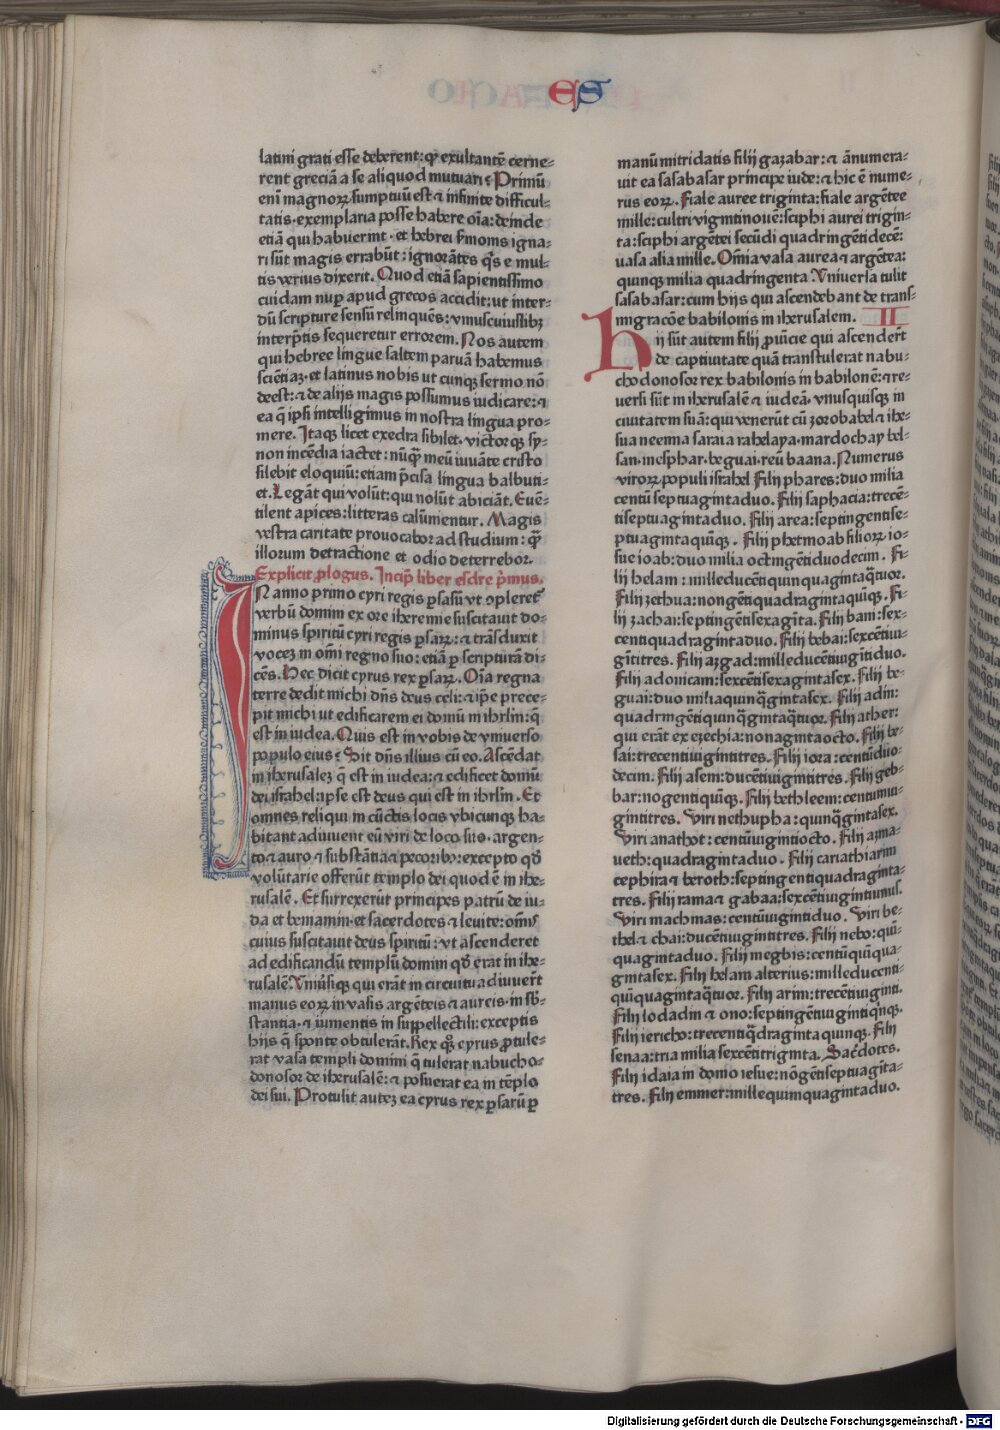 ES
latini grati esse deberent: qꝫ exultantē cerne⸗
rent greciā a se aliquod mutuari. Primū
enī magnoꝝ sumptuū est ⁊ infinite difficul⸗
tatis. exemplaria posse habere oīa: deinde
etiā qui habuerint. et hebrei smonis igna⸗
ri sūt magis errabūt: ignorātes qͥs e mul⸗
tis verius dixerit. Quod etiā sapientissimo
cuidam nuꝑ apud grecos accidit: ut inter⸗
dū scripture sensū relinquēs: vniuscuiuslibꝫ
interp̄tis sequeretur errorem. Nos autem
qui hebree lingue saltem paruā habemus
sciētiaꝫ. et latinus nobis ut cunqꝫ sermo nō
deest: ⁊ de alijs magis possumus iudicare: ⁊
ea q̄ ipsi intelligimus in nostra lingua pro⸗
mere. Itaqꝫ licet exedra sibilet. victorqꝫ sy⸗
non incēdia iactet: nūqͣ meū iuuāte cristo
silebit eloquiū: etiam p̄cisa lingua balbuti⸗
et. Legāt qui volūt: qui nolūt abiciāt. Euē⸗
tilent apices: litteras calūnientur. Magis
vestra caritate prouocabor ad studium: qͣ
illorum detractione et odio deterrebor.
Explicit ꝓlogus. Incip̄ liber esdre p̄mus.
IN anno primo cyri regis ꝑsaꝝ vt ꝯpleret᷑
verbū domini ex ore iheremie suscitauit do⸗
minus spiritū cyri regis ꝑsaꝝ: ⁊ trāsduxit
vocez in omī regno suo: etiā ꝑ scripturā di⸗
cēs. Hec dicit cyrus rex ꝑsaꝝ. Oīa regna
terre dedit michi dn̄s deus celi: ⁊ ip̄e prece⸗
pit michi ut edificarem ei domū in ihrl̄m: q̄
est in iudea. Quis est in vobis de vniuerso
populo eius. Sit dn̄s illius cū eo. Ascēdat
in iherusaleꝫ q̄ est in iudea: ⁊ edificet domū
dei israhel: ipse est deus qui est in ihrl̄m. Et
omnes reliqui in cūctis locis vbicunqꝫ ha⸗
bitant adiuuent eū viri de loco suo. argen⸗
to ⁊ auro ⁊ substātia ⁊ pecoribꝫ: excepto qd̄
volūtarie offerūt templo dei quod ē in ihe⸗
rusalē. Et surrexerūt principes patrū de iu⸗
da et beniamin. et sacerdotes ⁊ leuite: omīs
cuius suscitauit deus spiritū: vt ascenderet
ad edificandū templū domini qd̄ erat in ihe⸗
rusalē. Vniūsiqꝫ qui erāt in circuitu adiuuert̄
manus eoꝝ in vasis argēteis ⁊ aureis. in sb̄⸗
stantia. ⁊ iumentis in suppellectili: exceptis
hijs q̄ sponte obtulerāt. Rex qꝫ cyrus ꝓtule⸗
rat vasa templi domini q̄ tulerat nabucho⸗
donosor de iherusalē: ⁊ posuerat ea in tēplo
dei sui. Protulit auteꝫ ea cyrus rex ꝑsarū ꝑ
manū mitridatis filij gazabar: ⁊ ānumera⸗
uit ea sasabasar principe iude: ⁊ hic ē nume⸗
rus eoꝝ. Fiale auree triginta: fiale argētee
mille: cultri vigintinouē: sciphi aurei trigin⸗
ta: sciphi argētei secūdi quadringēti decē:
uasa alia mille. Omīa vasa aurea ⁊ argētea:
quinqꝫ milia quadringenta Vniuersa tulit
sasabasar: cum hijs qui ascendebant de trans⸗
migracōe babilonis in iherusalem. II
Hij sūt autem filij ꝓuīcie qui ascendert̄
de captiuitate quā transtulerat nabu⸗
chodonosor rex babilonis in babilonē: ⁊ re⸗
uersi sūt in iherusalē ⁊ iudeā. vnusquisqꝫ in
ciuitatem suā: qui venerūt cū zorobabel ⁊ ihe⸗
sua neemia saraia rahelaya. mardochay bel⸗
san. mesphar. beguai. reū baana. Numerus
viroꝝ populi israhel Filij phares: duo milia
centū septuagintaduo. Filij saphacia: trecē⸗
tiseptuagintaduo. Filij area: septingentise⸗
ptuagintaquīqꝫ. Filij phetmoab filioꝝ io⸗
sue ioab: duo milia octingētiduodecim. Fi⸗
lij helam: milleducētiquinquagintaqͣtuor.
Filij zethua: nongētiquadragintaquīqꝫ. Fi⸗
lij zachai: septingētisexagīta. Filij bani: sex⸗
centiquadragintaduo. Filij bebai: sexcētiui⸗
gītitres. Filij azgad: milleducētiuigītiduo.
Filij adonicam: sexcētisexagintasex. Filij be⸗
guai: duo miliaquinqͣgintasex. Filij adin:
quadringētiquinqͣgintaqͣtuor. Filij ather:
qui erāt ex ezechia: nonagintaocto. Filij be⸗
sai: trecentiuigintitres. Filij iora: centūduo⸗
decim. Filij asem: ducētiuigintitres. Filij geb⸗
bar: nogentiquīqꝫ. Filij bethleem: centumui⸗
gintitres. Viri nethupha: quinqͣgintasex.
Viri anathot: centūuigintiocto. Filij azma⸗
ueth: quadragintaduo. Filij cariathiarim
cephira ⁊ beroth: septingentiquadraginta⸗
tres. Filij rama ⁊ gabaa: sexcētiuigintiunus.
Viri machmas: centūuigintiduo. Viri be⸗
thel ⁊ chai: ducētiuigintitres. Filij nebo: quī⸗
quagintaduo. Filij megbis: centūquīqua⸗
gintasex. Filij helam alterius: milleducenti⸗
quīquagintaqͣtuor. Filij arim: trecētiuiginti.
Filij lodadin ⁊ ono: septingētiuigintiqͥnqꝫ.
Filij iericho: trecentiqͣdragintaquinqꝫ. Filij
senaa: tria milia sexcētitriginta. Sac̄dotes.
Filij idaia in domo iesue: nōgētiseptuagīta⸗
tres. Filij emmer: millequinquagintaduo.
Digitalisierung gefördert durch die Deutsche Forschungsgemeinschaft - DFG